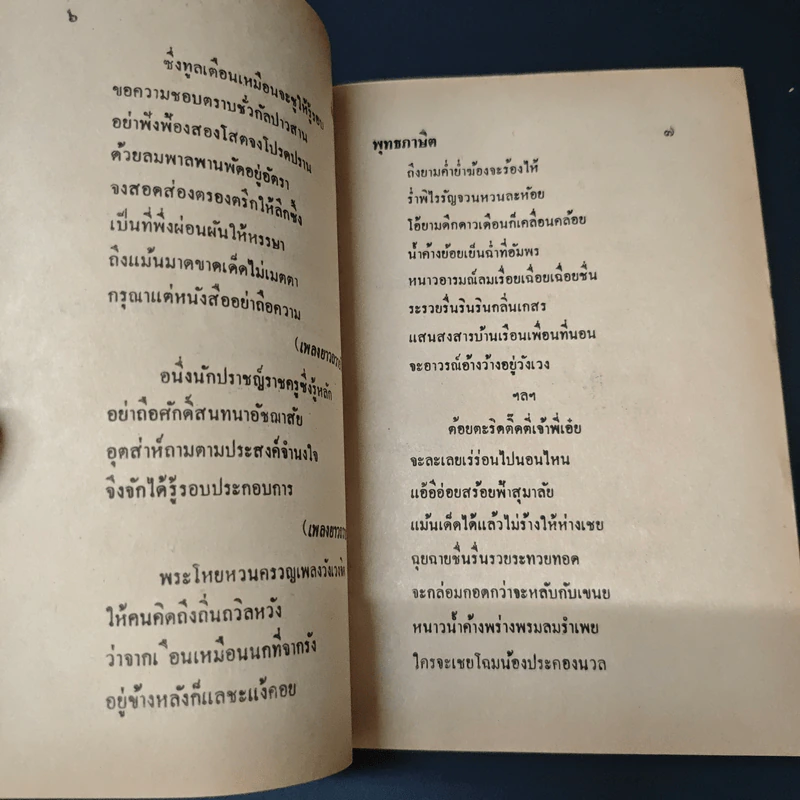 ๖
ซึ่งทูลเตือนเหมือนจะชูให้รู้รอบ
ขอความชอบตราบชั่วกัลปาวสาน
อย่าฟังฟ้องสองโสตจงโปรดปราน
ด้วยลมพาลพานพัดอยู่อัตรา
จงสอดส่องตรองตรึกให้ลึกซึ้ง
เป็นที่พึ่งผ่อนผันให้หรรษา
ถึงแม้นมาดขาดเด็ดไม่เมตตา
กรุณาแต่หนังสืออย่าถือความ
(เพลงยาวถวาย
อนึ่งนักปราชญ์ราชครูซึ่งรู้หลัก
อย่าถือศักดิ์สนทนาอัชฌาสัย
อุตส่าห์ถามตามประสงค์จำนงใจ
จึงจักได้รู้รอบประกอบการ
(เพลงยาวถวาย
พระโหยหวนครวญเพลงวังเวงจิต
ให้คนคิดถึงถิ่นถวิลหวัง
ว่าจากเ ือนเหมือนนกที่จากรัง
อยู่ข้างหลังก็แลชะแง้คอย
พุทธภาษิต
๗
ถึงยามค่ำย่ำฆ้องจะร้องไห้
ร่ำพิไรรัญจวนหวนละห้อย
โอ้ยามดึกดาวเดือนก็เคลื่อนคล้อย
น้ำค้างย้อยเย็นฉ่ำที่อัมพร
หนาวอารมณ์ลมเรื่อยเฉื่อยเฉื่อยชื่น
ระรวยรื่นรินรินกลิ่นเกสร
แสนสงสารบ้านเรือนเพื่อนที่นอน
จะอาวรณ์อ้างว้างอยู่วังเวง
ฯลฯ
ต้อยตะริดติ๊ดตี่เจ้าพี่เอ๋ย
จะละเลยเร่ร่อนไปนอนไหน
แอ้อีอ่อยสร้อยฟ้าสุมาลัย
แม้นเด็ดได้แล้วไม่ร้างให้ห่างเชย
ฉุยฉายชื่นรื่นรวยระทวยทอด
จะกล่อมกอดกว่าจะหลับกับเขนย
หนาวน้ำค้างพร่างพรมลมรำเพย
ใครจะเชยโฉมน้องประคองนวล